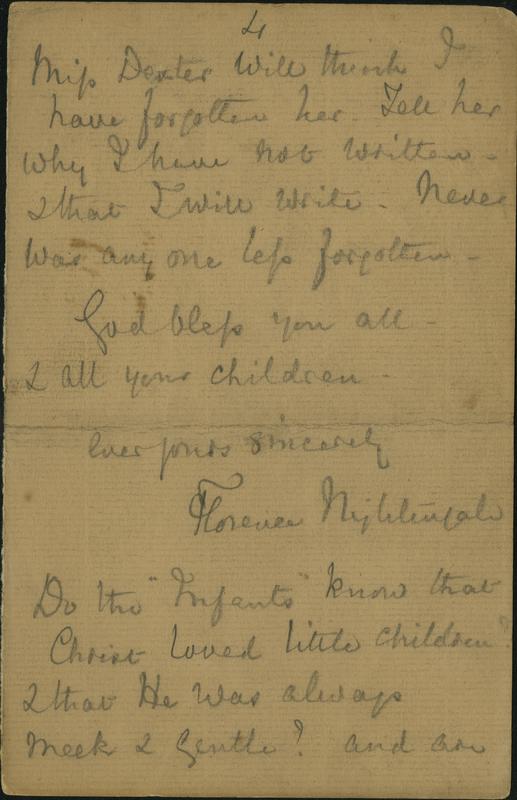 4
Miss Dexter will think I
have forgotten her. Tell her
why I have not written -
& that I will write - Never
was any one less forgotten -
God bless you all -
& all your children -
ever yours sincerely
Florence Nightingale
Do the "Infants" know that
Christ loved little children?
& that He was always
meek & gentle? and are